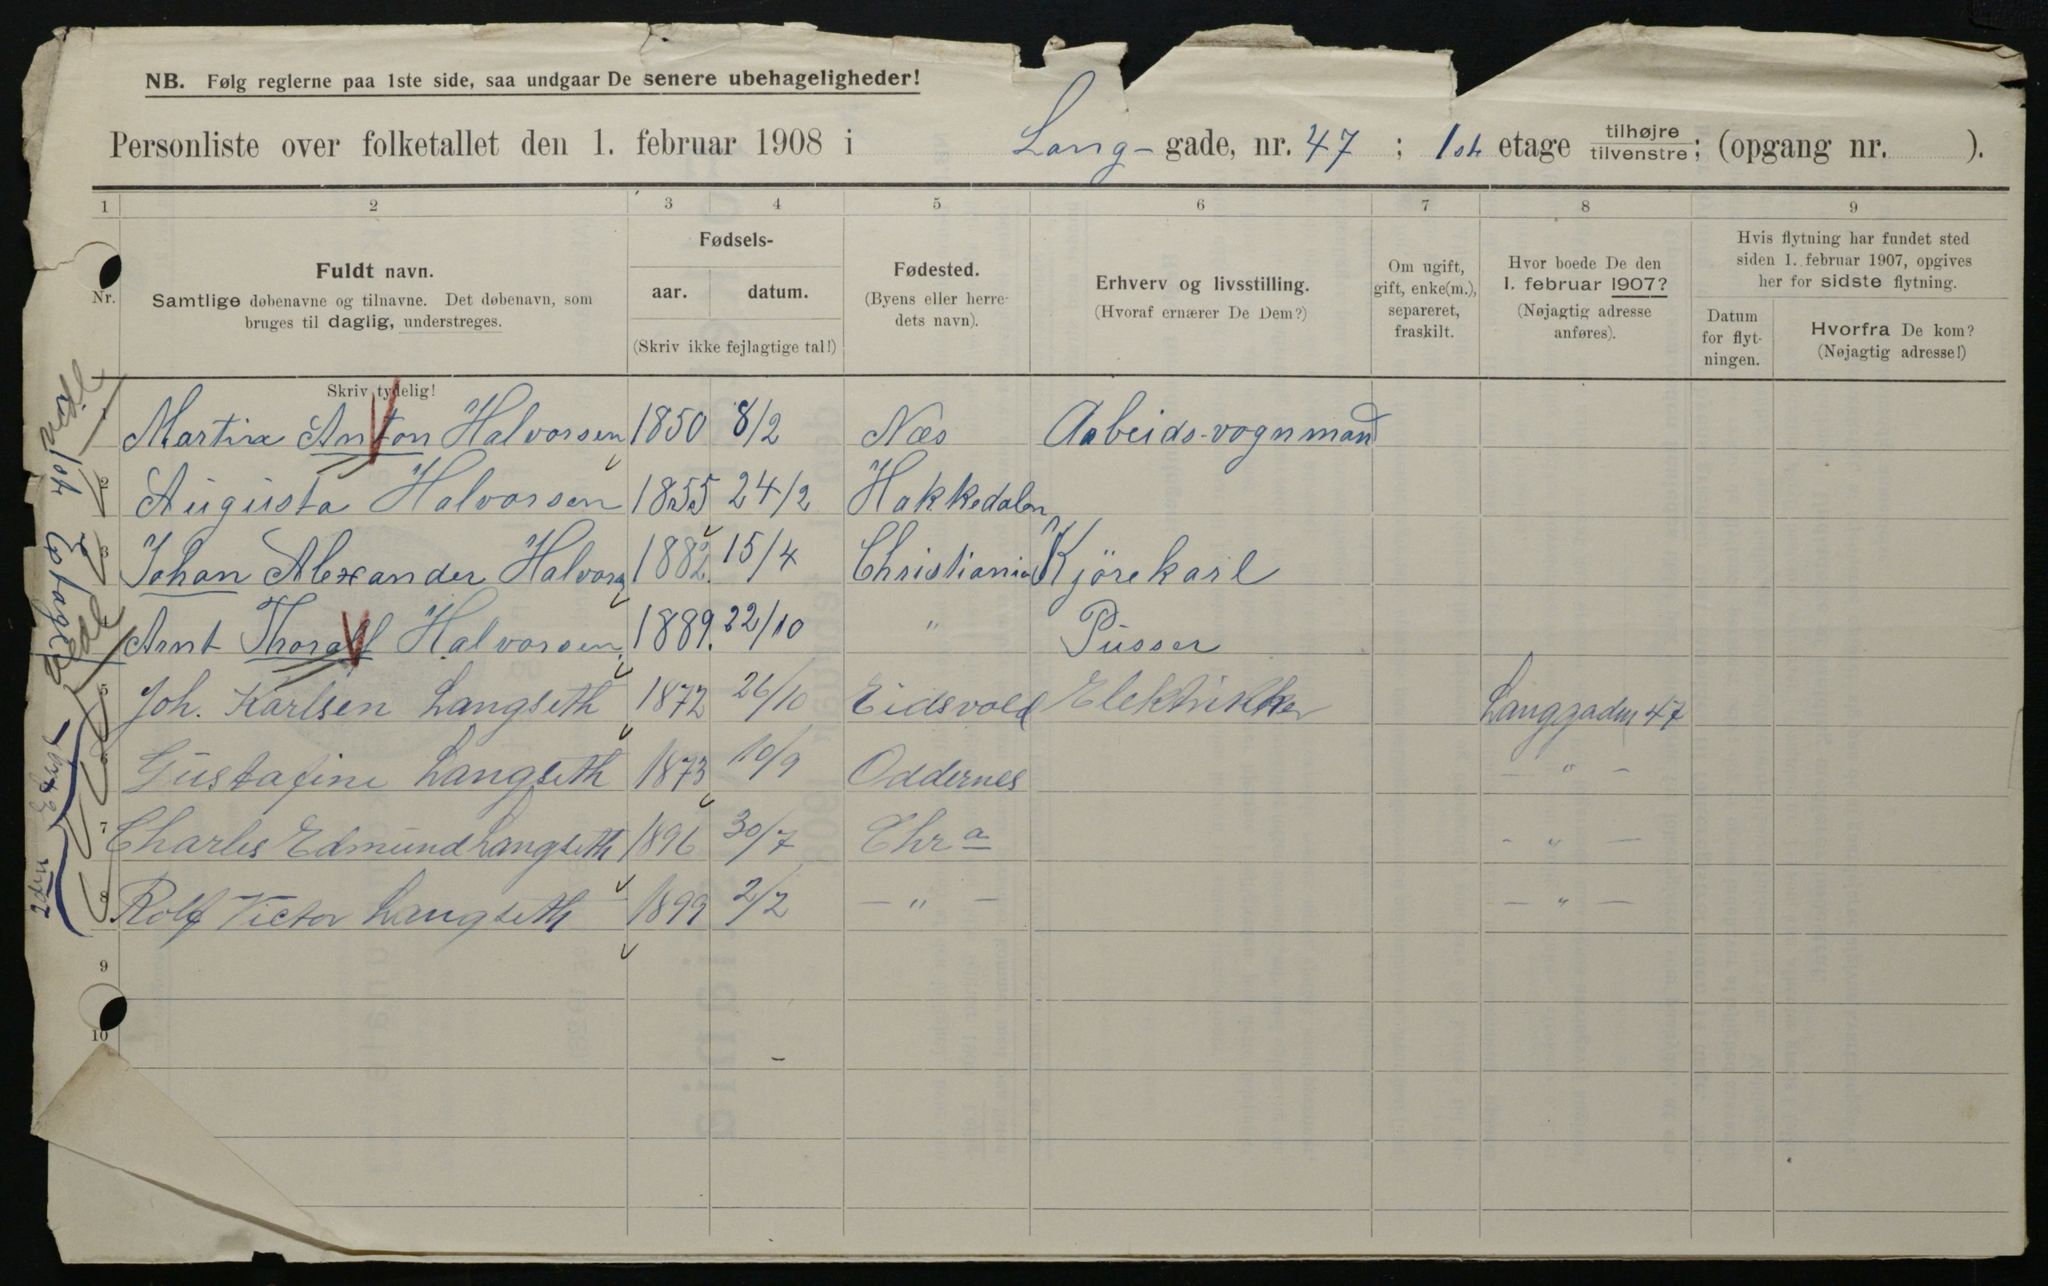 NB. Følg reglerne paa 1ste side, saa undgaar De senere ubehageligheder!
Personliste over folketallet den 1. februar 1908 i Lang- gade, nr. 47 ; 1ste etage tilhøjre tilvenstre ; (opgang nr. ).
1 2 3 4 5 6 7 8 9
Nr.
Fuldt navn.
Samtlige døbenavne og tilnavne. Det døbenavn, som
bruges til daglig, understreges.
Skriv tydelig!
Fødsels-
aar. datum.
(Skriv ikke fejlagtige tal!)
Fødested.
(Byens eller herre-
dets navn).
Erhverv og livsstilling.
(Hvoraf ernærer De Dem?)
Om ugift,
gift, enke(m.),
separeret,
fraskilt.
Hvor boede De den
1. februar 1907?
(Nøjagtig adresse
anføres).
Hvis flytning har fundet sted
siden 1. februar 1907, opgives
her for sidste flytning.
Datum
for flyt-
ningen.
Hvorfra De kom?
(Nøjagtig adresse!)
1 Martin Anton Halvorsen 1850 8/2 Næs Arbeids-vognmand
2 Augusta Halvorsen 1855 24/2 Hakkedalen
3 Johan Alexander Halvors 1882. 15/4 Christiania Kjørekarl
Arnt Thoralf Halvorsen 1889. 22/10 " Pusser
5 Joh. Karlsen Langseth 1872 26/10 Eidsvold Elektrikker Langgaden 47
6 Gustafine Langseth 1873 10/9 Oddernes — " —
7 Charles Edmund Langseth 1896 30/7 Chra - " —
8 Rolf Victor Langseth 1899 2/2 — " — — " —
9
10